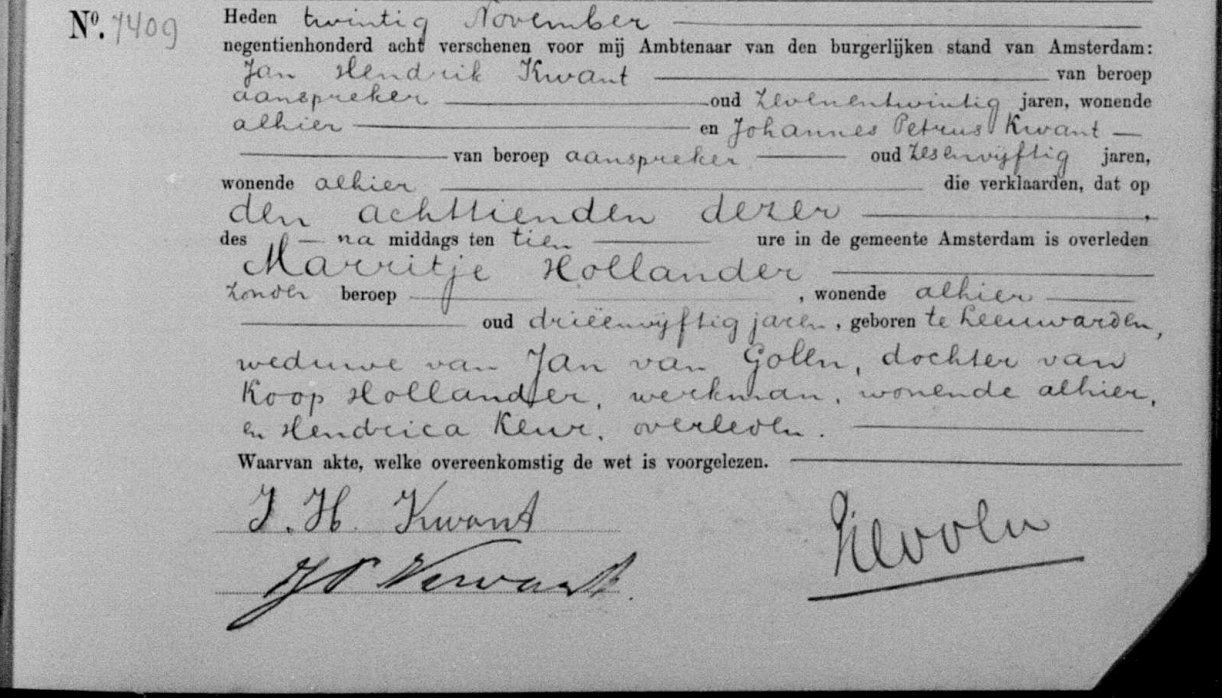 Nº. 1409
Heden twintig November
negentienhonderd acht verschenen voor mij Ambtenaar van den burgerlijken stand van Amsterdam:
Jan Hendrik Kwant van beroep
aanspreker oud zevenentwintig jaren, wonende
alhier en Johannes Petrus Kwant
van beroep aanspreker oud zesenvijftig jaren,
wonende alhier die verklaarden, dat op
den achttienden dezer,
des na middags ten tien ure in de gemeente Amsterdam is overleden
Marritje Hollander
zonder beroep, wonende alhier
oud drieënvijftig jaren, geboren te Leeuwarden,
weduwe van Jan van Golen, dochter van
Koop Hollander, werkman, wonende alhier,
en Hendrica Keur, overleden.
Waarvan akte, welke overeenkomstig de wet is voorgelezen.
J. H. Kwant
J P